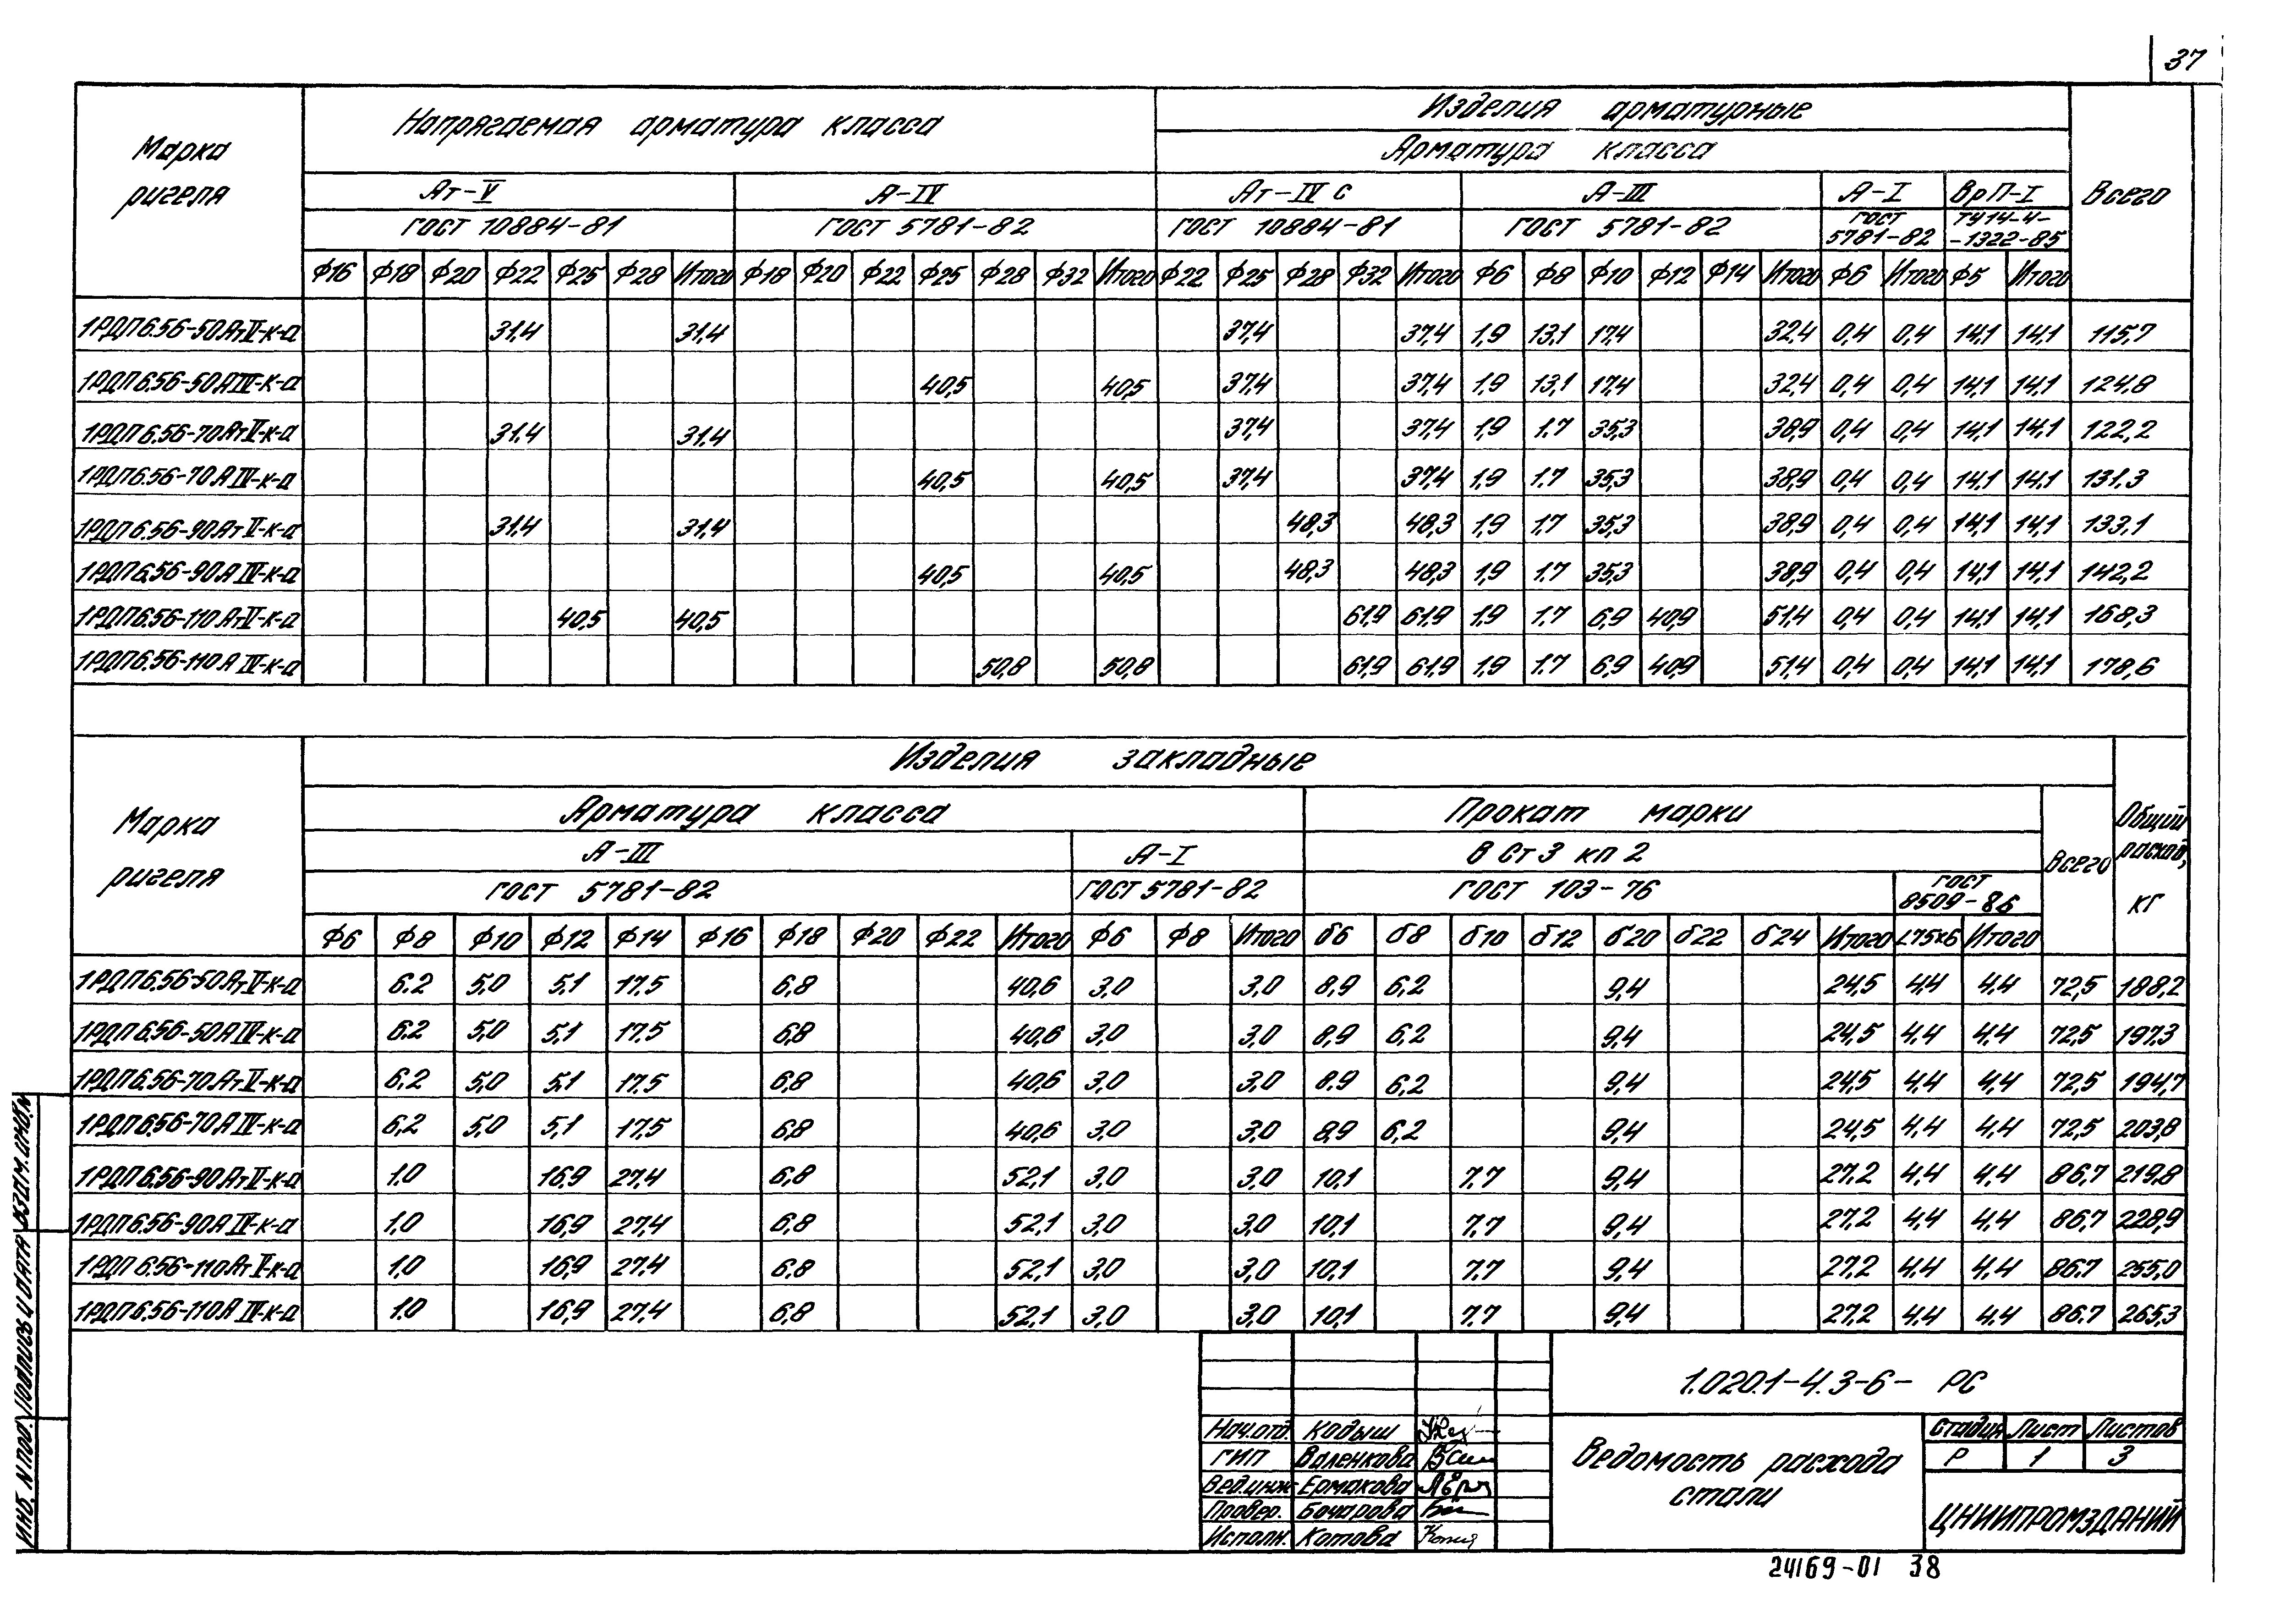 37
Марка ригеля
Напрягаемая арматура класса
Изделия арматурные
Всего
Арматура класса
Ат-V
А-IV
Ат-IVс
А-III
А-I
ВрП-I
ГОСТ 10884-81
ГОСТ 5781-82
ГОСТ 10884-81
ГОСТ 5781-82
ГОСТ 5781-82
ТУ14-4-
-1322-85
Ф16 Ф18 Ф20 Ф22 Ф25 Ф28 Итого Ф18 Ф20 Ф22 Ф25 Ф28 Ф32 Итого Ф22 Ф25 Ф28 Ф32 Итого Ф6 Ф8 Ф10 Ф12 Ф14 Итого Ф6 Итого Ф5 Итого
1РДП6.56-50АтV-к-а 31,4 31,4 37,4 37,4 1,9 13,1 17,4 32,4 0,4 0,4 14,1 14,1 115,7
1РДП6.56-50АIV-к-а 40,5 40,5 37,4 37,4 1,9 13,1 17,4 32,4 0,4 0,4 14,1 14,1 124,8
1РДП6.56-70АтV-к-а 31,4 31,4 37,4 37,4 1,9 1.7 35,3 38,9 0,4 0,4 14,1 14,1 122,2
1РДП6.56-70АIV-к-а 40,5 40,5 37,4 37,4 1,9 1.7 35,3 38,9 0,4 0,4 14,1 14,1 131.3
1РДП6.56-90АтV-к-а 31,4 31,4 48,3 48,3 1,9 1.7 35,3 38,9 0,4 0,4 14,1 14,1 133,1
1РДП6.56-90АIV-к-а 40,5 40,5 48,3 48,3 1,9 1.7 35,3 38,9 0,4 0,4 14,1 14,1 142,2
1РДП6.56-110АтV-к-а 40,5 40,5 61,9 61,9 1,9 1.7 6,9 40,9 51,4 0,4 0,4 14,1 14,1 168,3
1РДП6.56-110АIV-к-а 50,8 50,8 61,9 61,9 1,9 1.7 6,9 40,9 51,4 0,4 0,4 14,1 14,1 178,6
Марка ригеля
Изделия закладные
Общий расход, кг
Арматура класса
Прокат марки
Всего
А-III
А-I
ВСт3кп2
ГОСТ 5781-82
ГОСТ 5781-82
ГОСТ 103-76
ГОСТ 8509-86
Ф6 Ф8 Ф10 Ф12 Ф14 Ф16 Ф18 Ф20 Ф22 Итого Ф6 Ф8 Итого δ6 δ8 δ10 δ12 δ20 δ22 δ24 Итого L75х6 Итого
1РДП6.56-50АтV-к-а 6.2 5,0 5,1 17.5 6,8 40,6 3,0 3,0 8,9 6,2 9,4 24,5 4,4 4,4 72,5 188,2
1РДП6.56-50АIV-к-а 6.2 5,0 5,1 17.5 6,8 40,6 3,0 3,0 8,9 6,2 9,4 24,5 4,4 4,4 72,5 197,3
1РДП6.56-70АтV-к-а 6,2 5,0 5,1 17.5 6,8 40,6 3,0 3,0 8,9 6,2 9,4 24,5 4,4 4,4 72,5 194,7
1РДП6.56-70АIV-к-а 6,2 5,0 5,1 17,5 6,8 40,6 3,0 3,0 8,9 6,2 9,4 24,5 4,4 4,4 72,5 203,8
1РДП6.56-90АтV-к-а 1.0 16,9 27,4 6,8 52,1 3,0 3,0 10,1 7.7 9,4 27,2 4,4 4,4 86,7 219,8
1РДП6.56-90АIV-к-а 1.0 16,9 27,4 6,8 52,1 3,0 3,0 10,1 7,7 9,4 27,2 4,4 4,4 86,7 228,9
1РДП6.56-110АтV-к-а 1,0 16,9 27,4 6,8 52,1 3,0 3,0 10,1 7.7 9,4 27,2 4,4 4,4 86.7 255,0
1РДП6.56-110АIV-к-а 1.0 16,9 27,4 6,8 52,1 3,0 3,0 10,1 7.7 9,4 27,2 4,4 4,4 86.7 265,3
ИНВ. N ПОД. Подпись и дата ВЗАМ.ИНВ.N
1.020.1-4.3-6- РС
Нач.отд. Кодыш
ГИП Валенкова
Вед.инж. Ермакова
Провер. Бочарова
Исполн. Котова
Ведомость расхода
стали
Стадия Лист Листов
Р 1 3
ЦНИИПРОМЗДАНИЙ
24169-01 38